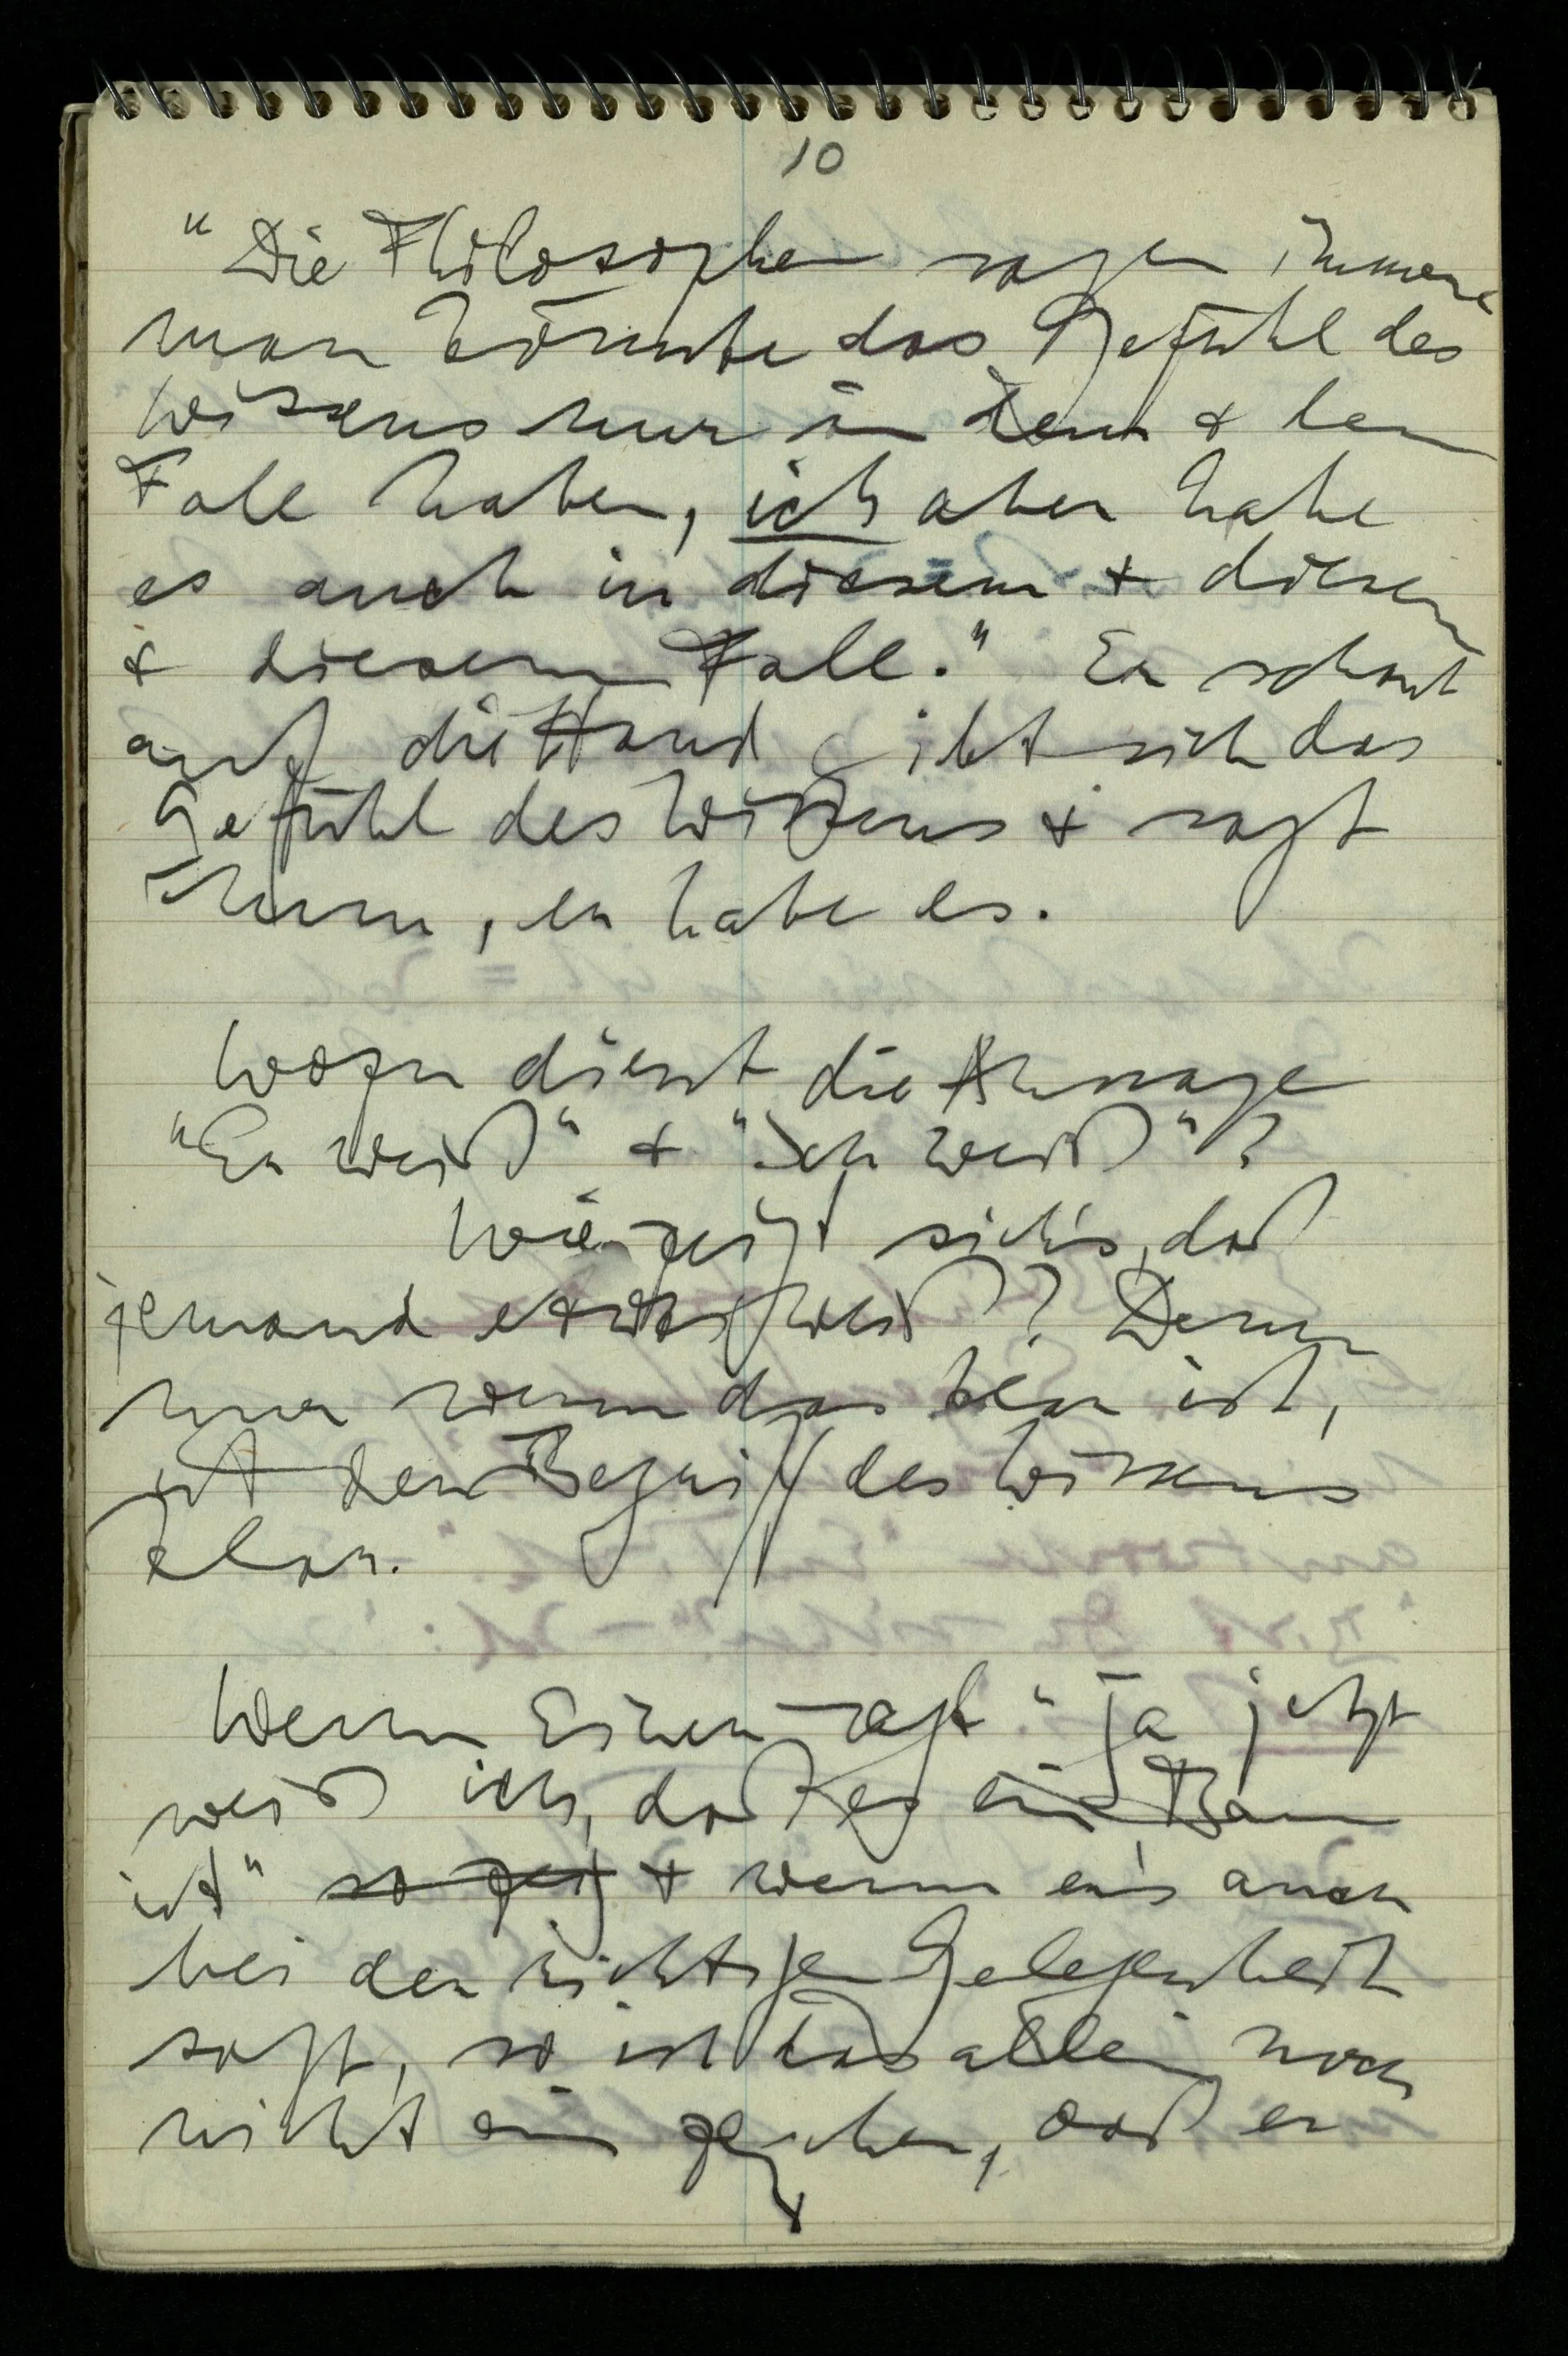 10
"Die Philosophen sagen immer
man könnte das Gefühl des
Wissens nur in dem & dem
Fall haben, ich aber habe
es auch in diesem & diesem
& diesem Fall." Er schaut
auf die Hand gibt sich das
Gefühl des Wissens & sagt
nun, er habe es.
Wozu dient die Aussage
"Er weiß" & "Ich weiß"?
Wie zeigt sich's, daß
jemand etwas weiß? Denn
nur wenn das klar ist,
ist der Begriff des Wissens
klar.
Wenn Einer sagt "Ja jetzt
weiß ich, daß es ein Baum
ist" so zeigt & wenn er's auch
bei der richtigen Gelegenheit
sagt, so ist das allein noch
nicht ein Zeichen, daß er